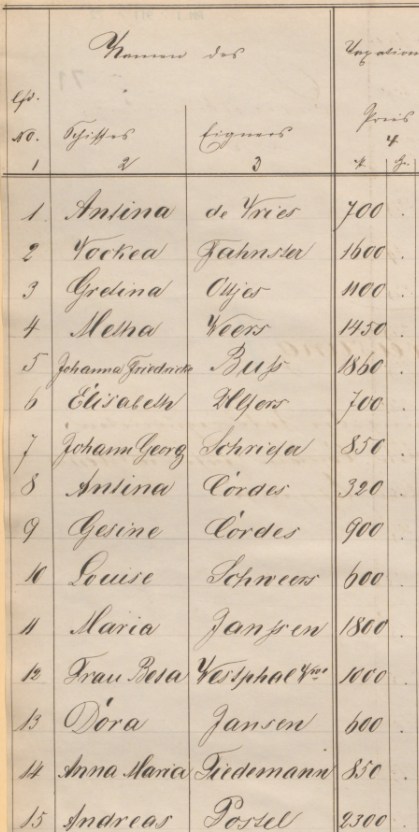 Namen des Taxations
lfd.
No. Schiffes Eigners Preis
1 2 3 4
1 Antina de Vries 700
2 Fockea Fahnster 1600
3 Gretina Oltjes 1100
4 Metha Weers 1450
5 Johanna Friedricke Buß 1860
6 Elisabeth 700
7 Johann Georg Schriefer 850
8 Antina Cordes 320
9 Gesine Cordes 900
10 Louise Schweers 600
11 Maria Janßen 1800
12 Frau Beta Westphal Wwe 1000
13 Dora Jansen 600
14 Anna Maria Tiedemann 850
15 Andreas Postel 2300